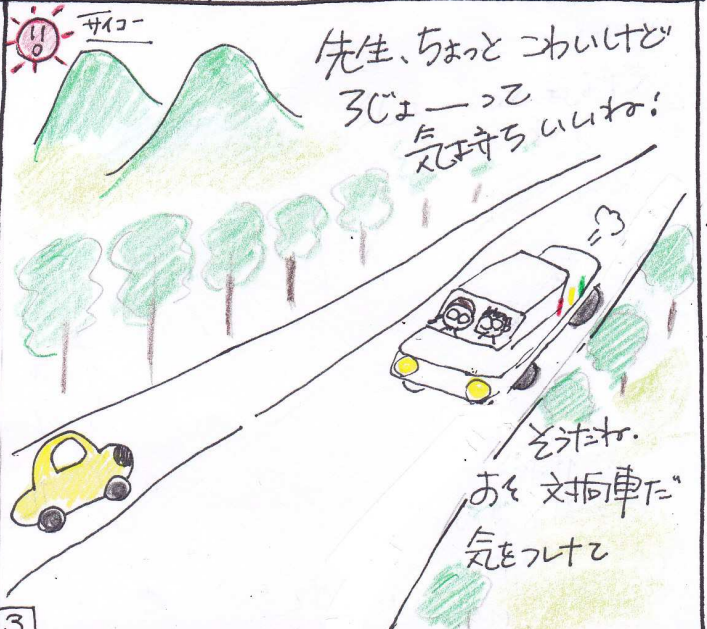 サイコー
先生、ちょっと こわいけど
ろじょーって
気持ち いいね!
そうだね.
おそ 対向車だ
気をつけて
3